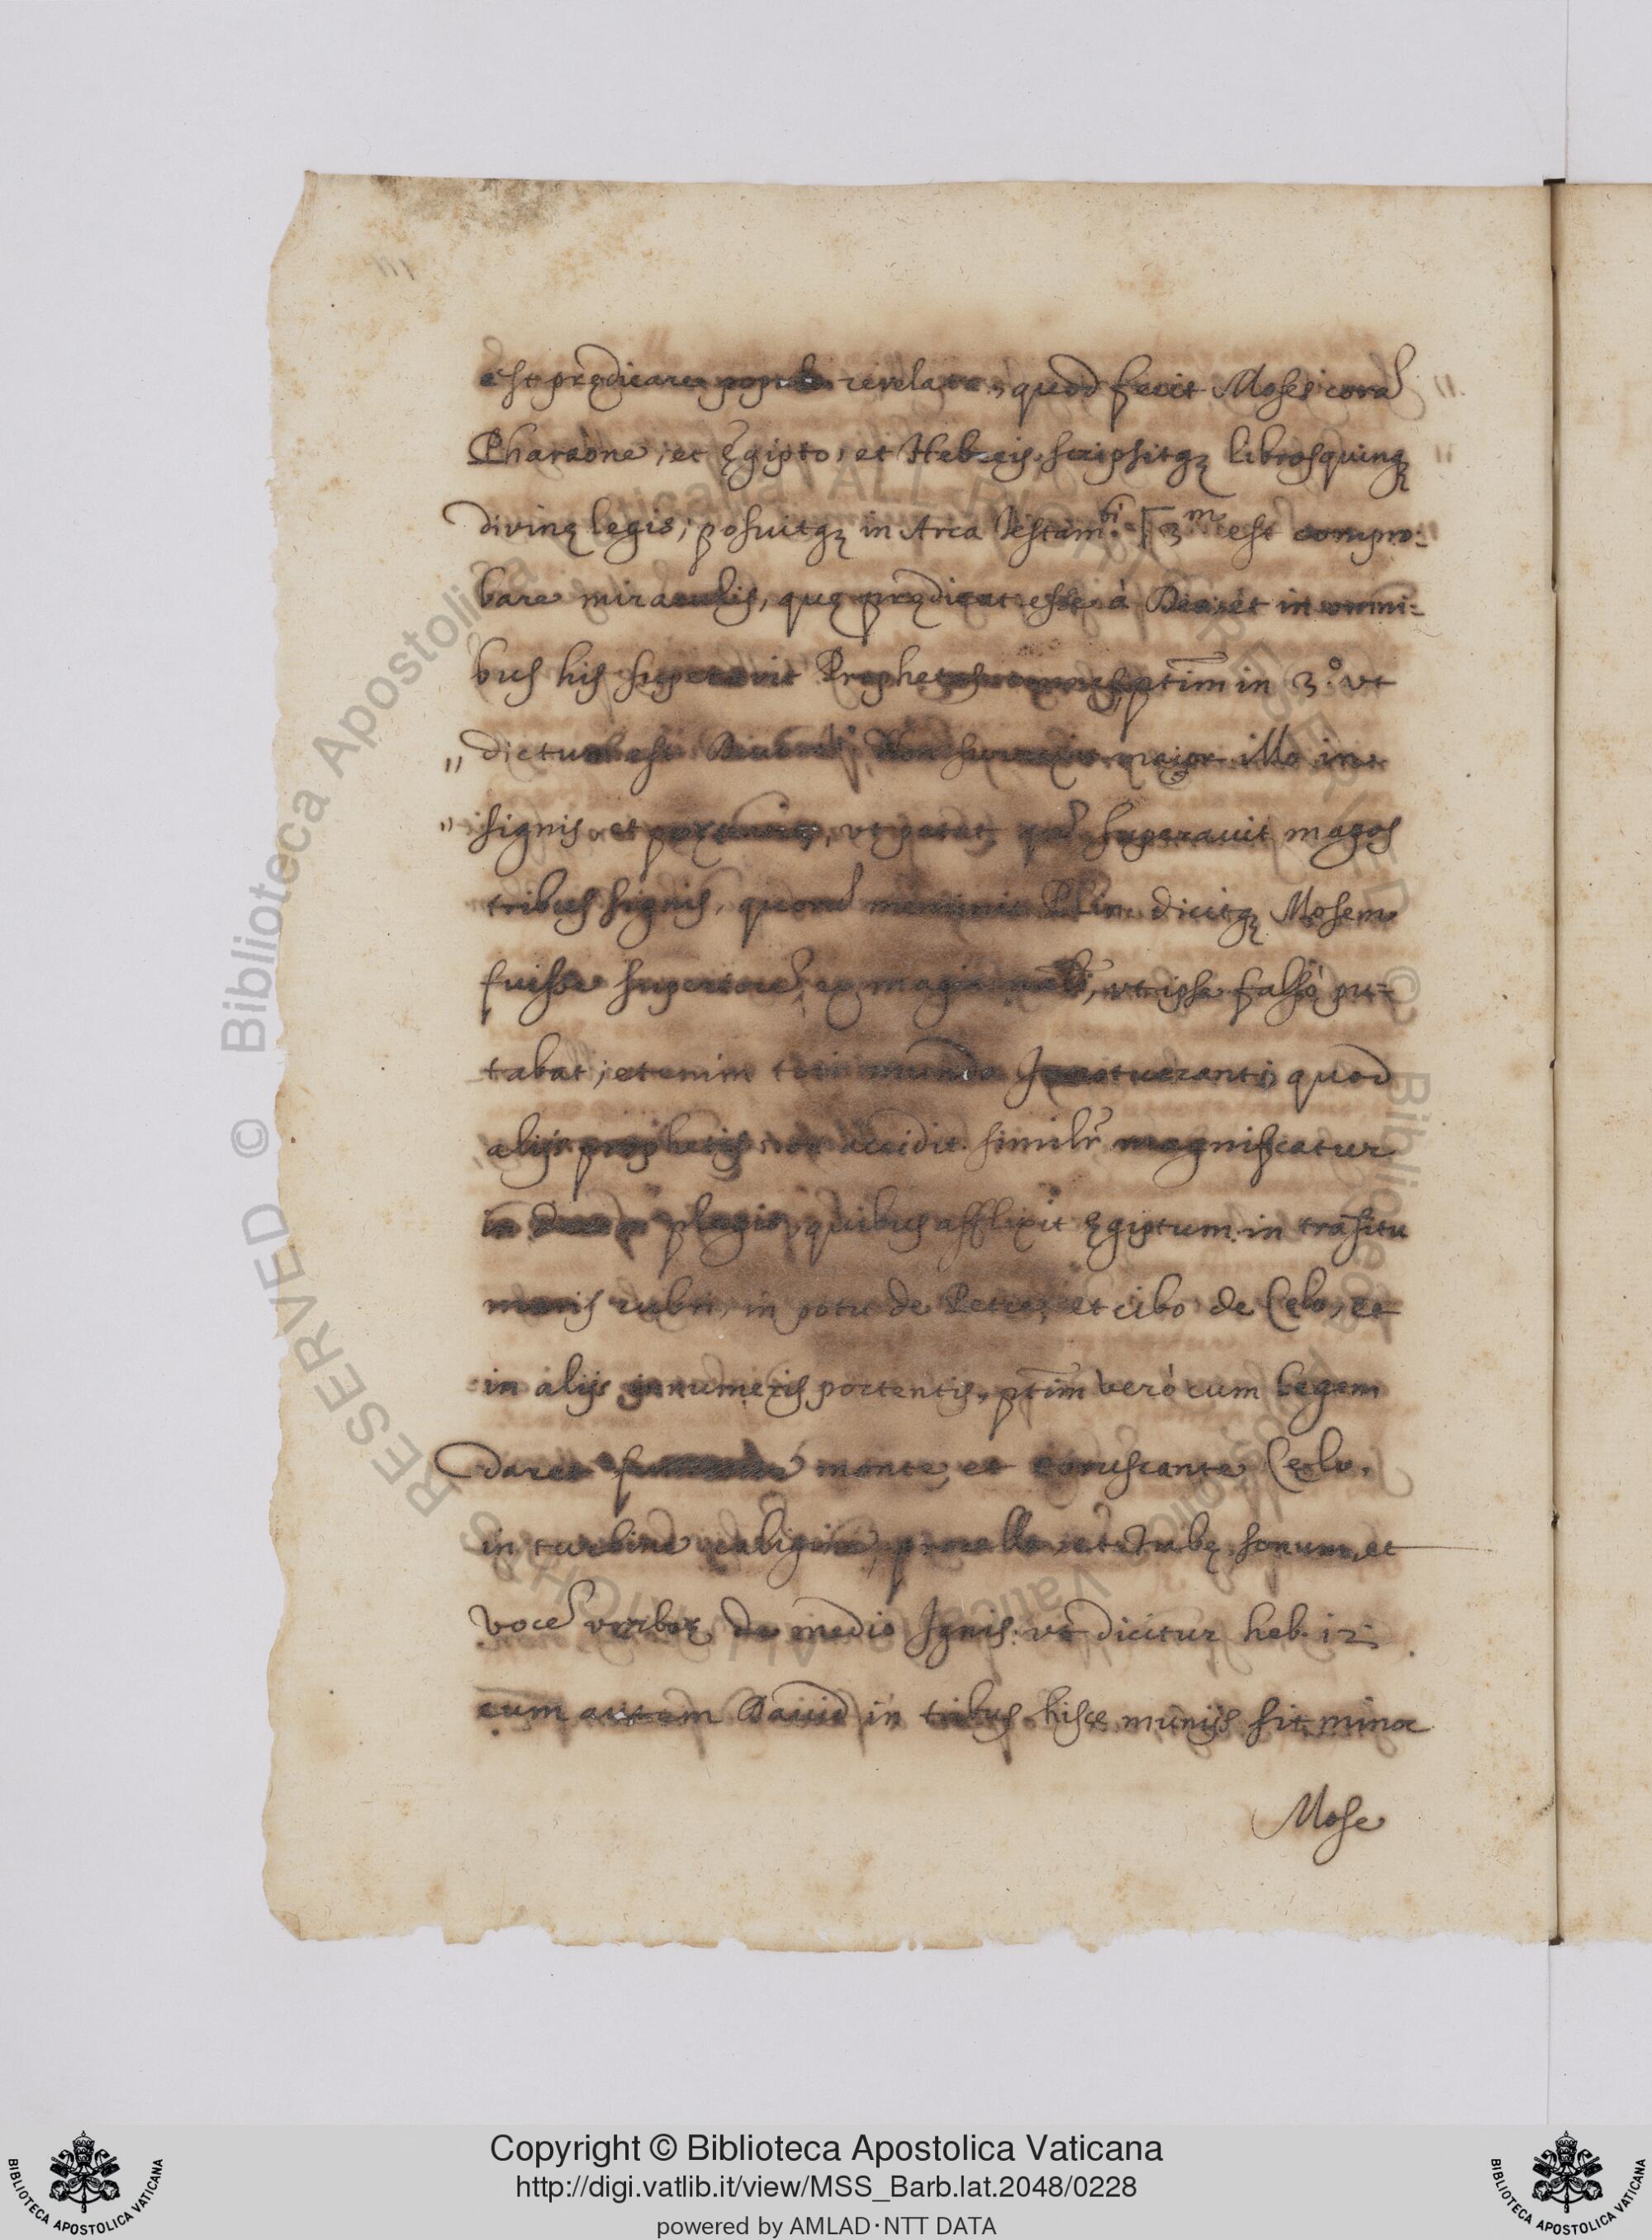 est prędicare populo revelata, quod fecit Moses corã
Pharaone, et Ęgipto, et Hebręis, scripsitqȝ libros quinqȝ
divinę legis, posuitqȝ in Arca Testam.ti 3.m est compro=
bare miraculis, quę prędicat esse à Deo, et in omni=
bus his superavit Prophetas omnes, ptĩm in 3.º vt
" dictum est Non surrexit maior illo in
" signis et portentis, vt patet, superauit magos
tribus signis, quorũ meminit Plin. dicitqȝ Mosem
fuisse superiorẽ, ex magia, vt ipse falsò pu=
tabat, etenim toti mundo Innotuerant, quod
alijs prophetis nõ accidit. similr magnificatur
in plagis, quibus afflixit ęgiptum, in trãsitu
maris rubri, in potu de Petra, et cibo de Celo, et
in alijs innumeris portentis, ptĩm verò cum legem
daret monte, et coruscante Cęlo,
in turbine, caligine, procella, et Tubę sonum, et
vocẽ verborȝ de medio Ignis. vt dicitur heb. 12.
cum autem Dauid in tribus hisce munijs sit minor
Mose
Copyright © Biblioteca Apostolica Vaticana
http://digi.vatlib.it/view/MSS_Barb.lat.2048/0228
powered by AMLAD·NTT DATA
BIBLIOTECA APOSTOLICA VATICANA
BIBLIOTECA APOSTOLICA VATICANA